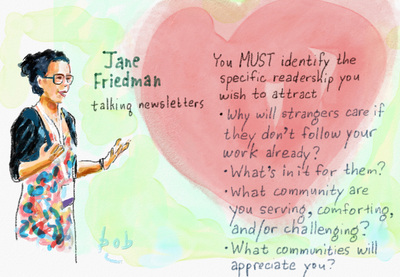 Jane
Friedman
talking newsletters
You MUST identify the
specific readership you
wish to attract
• Why will strangers care if
they don't follow your
work already?
• What's in it for them?
• What community are
you serving, comforting,
and/or challenging?
• What communities will
appreciate you?
bob